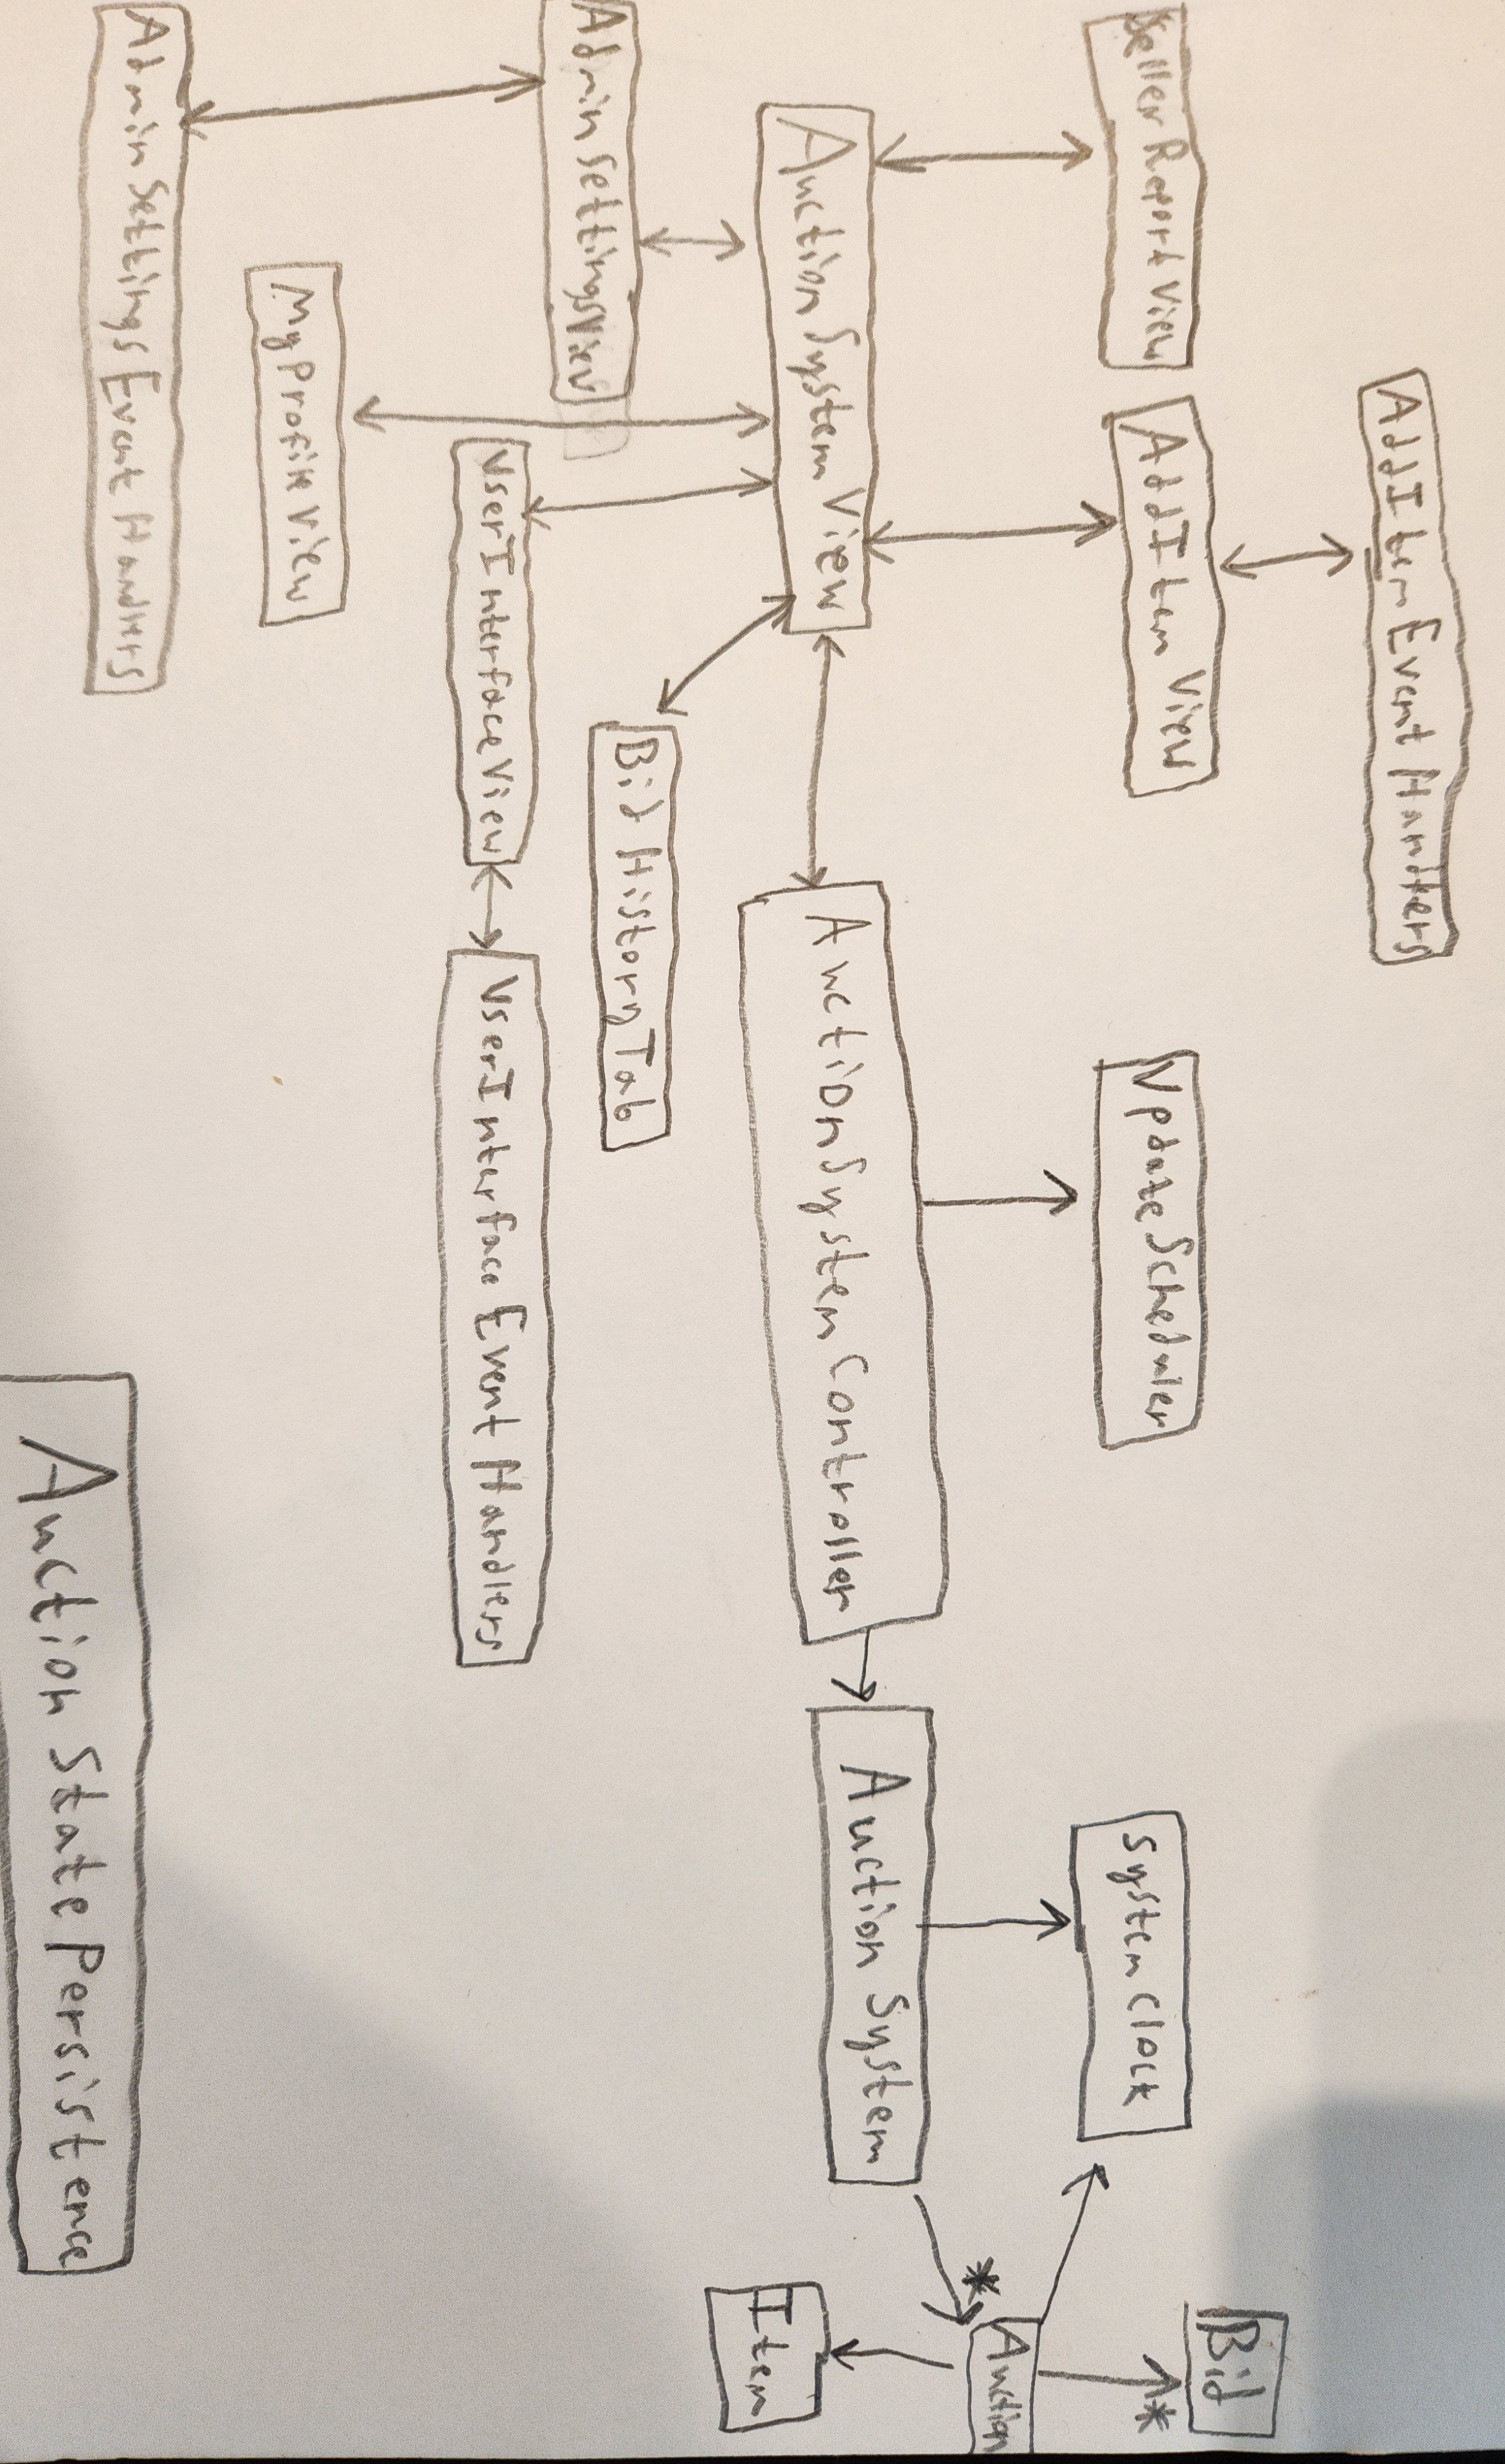 AddItem Event Handlers
Bid
Seller Report View
AddItem View
Update Scheduler
System Clock
*
Auction
*
Auction System View
Auction System Controller
Auction System
Item
Bid History Tab
Admin Settings View
User Interface View
User Interface Event Handlers
My Profile View
Admin Settings Event Handlers
Auction State Persistence